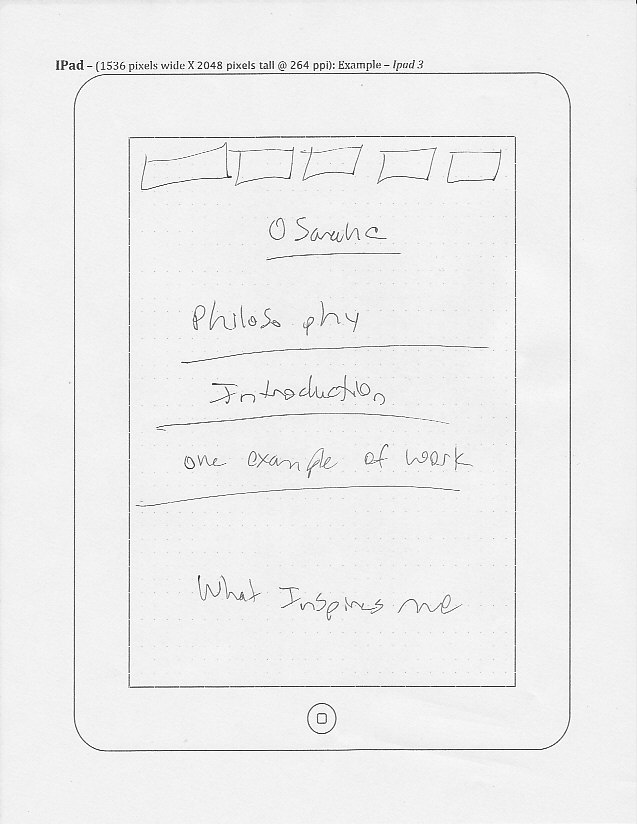 IPad – (1536 pixels wide X 2048 pixels tall @ 264 ppi): Example – Ipad 3
Philosophy
Introduction
one example of work
What Inspires me